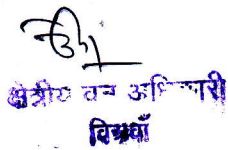 क्षेत्रीय वन अधिकारी
बिसवाँ